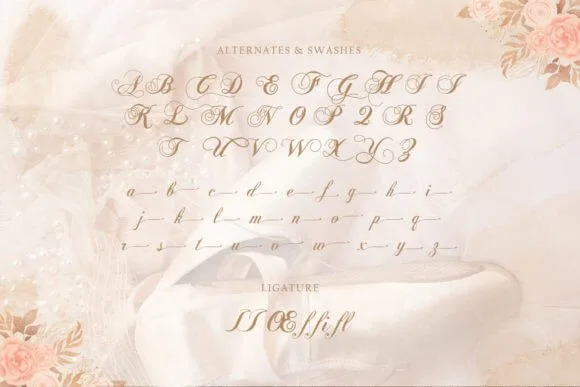 ALTERNATES & SWASHES
A B C D E F G H I I
K L M N O P Q R S
T U V W X Y Z
a b c d e f g h i
j k l m n o p q
r s t u v w x y z
LIGATURE